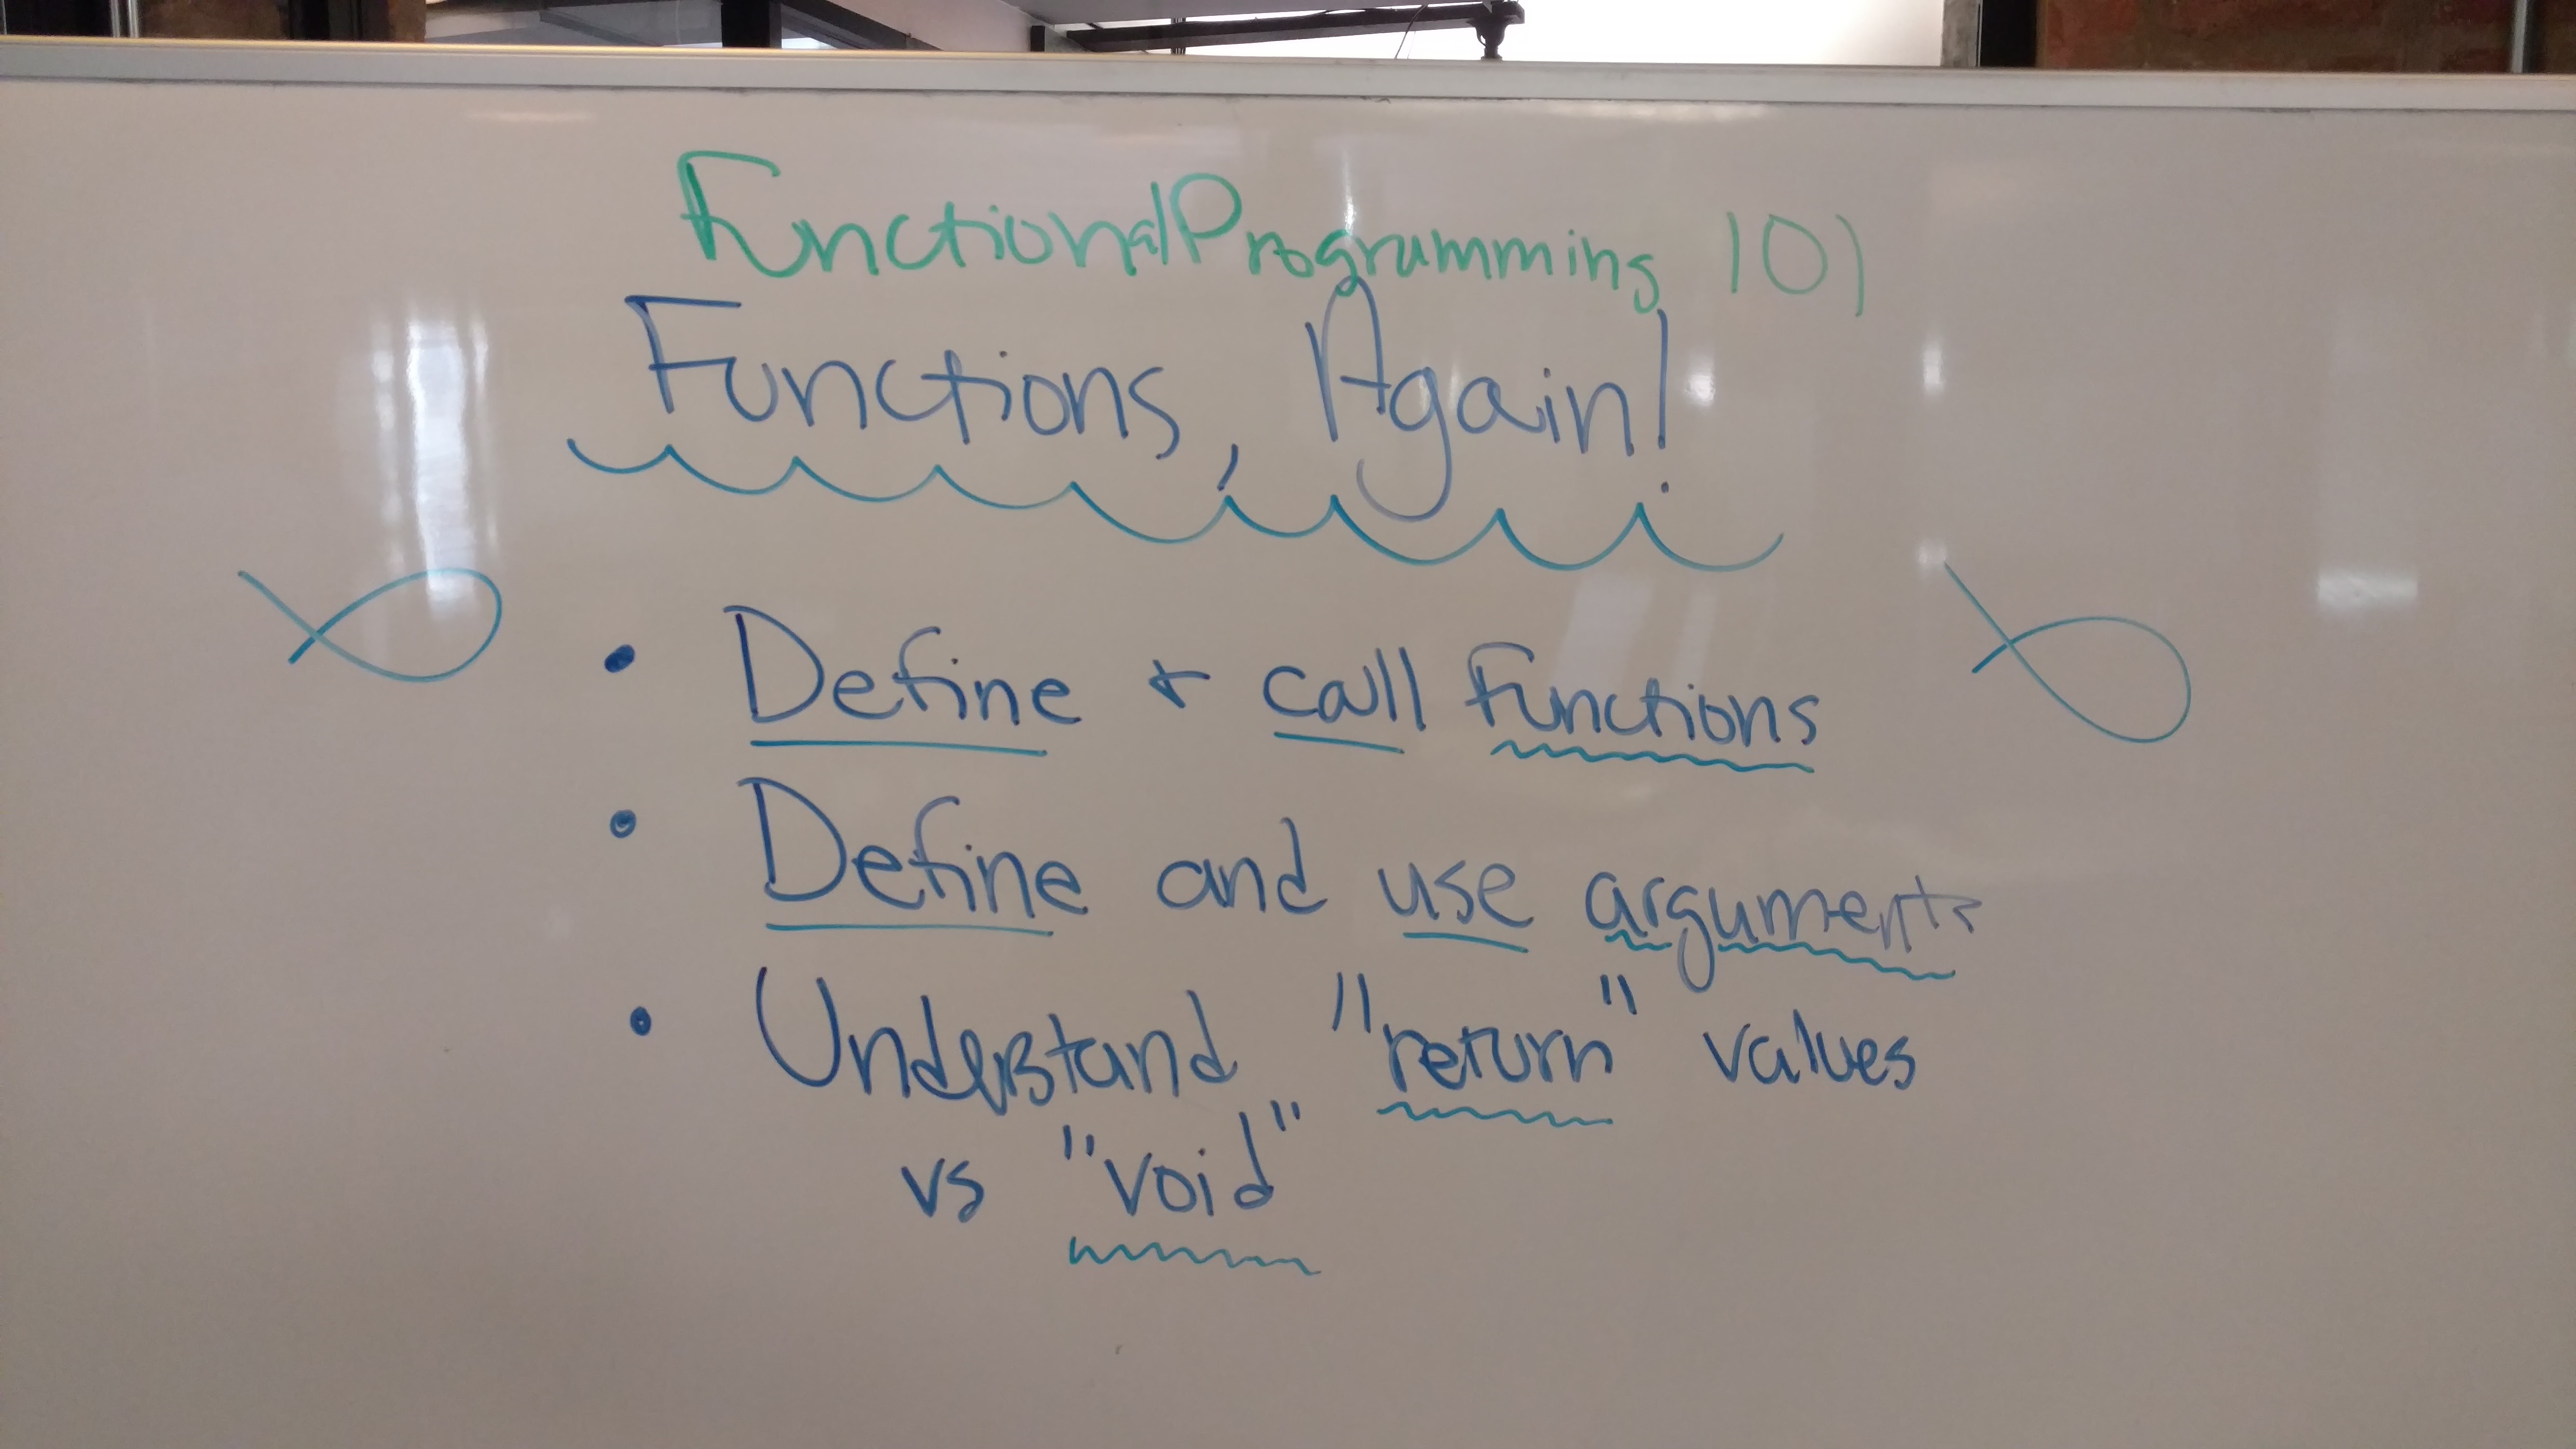 Functional Programming 101
Functions, Again!
• Define + call functions
• Define and use arguments
• Understand "return" values
vs "void"